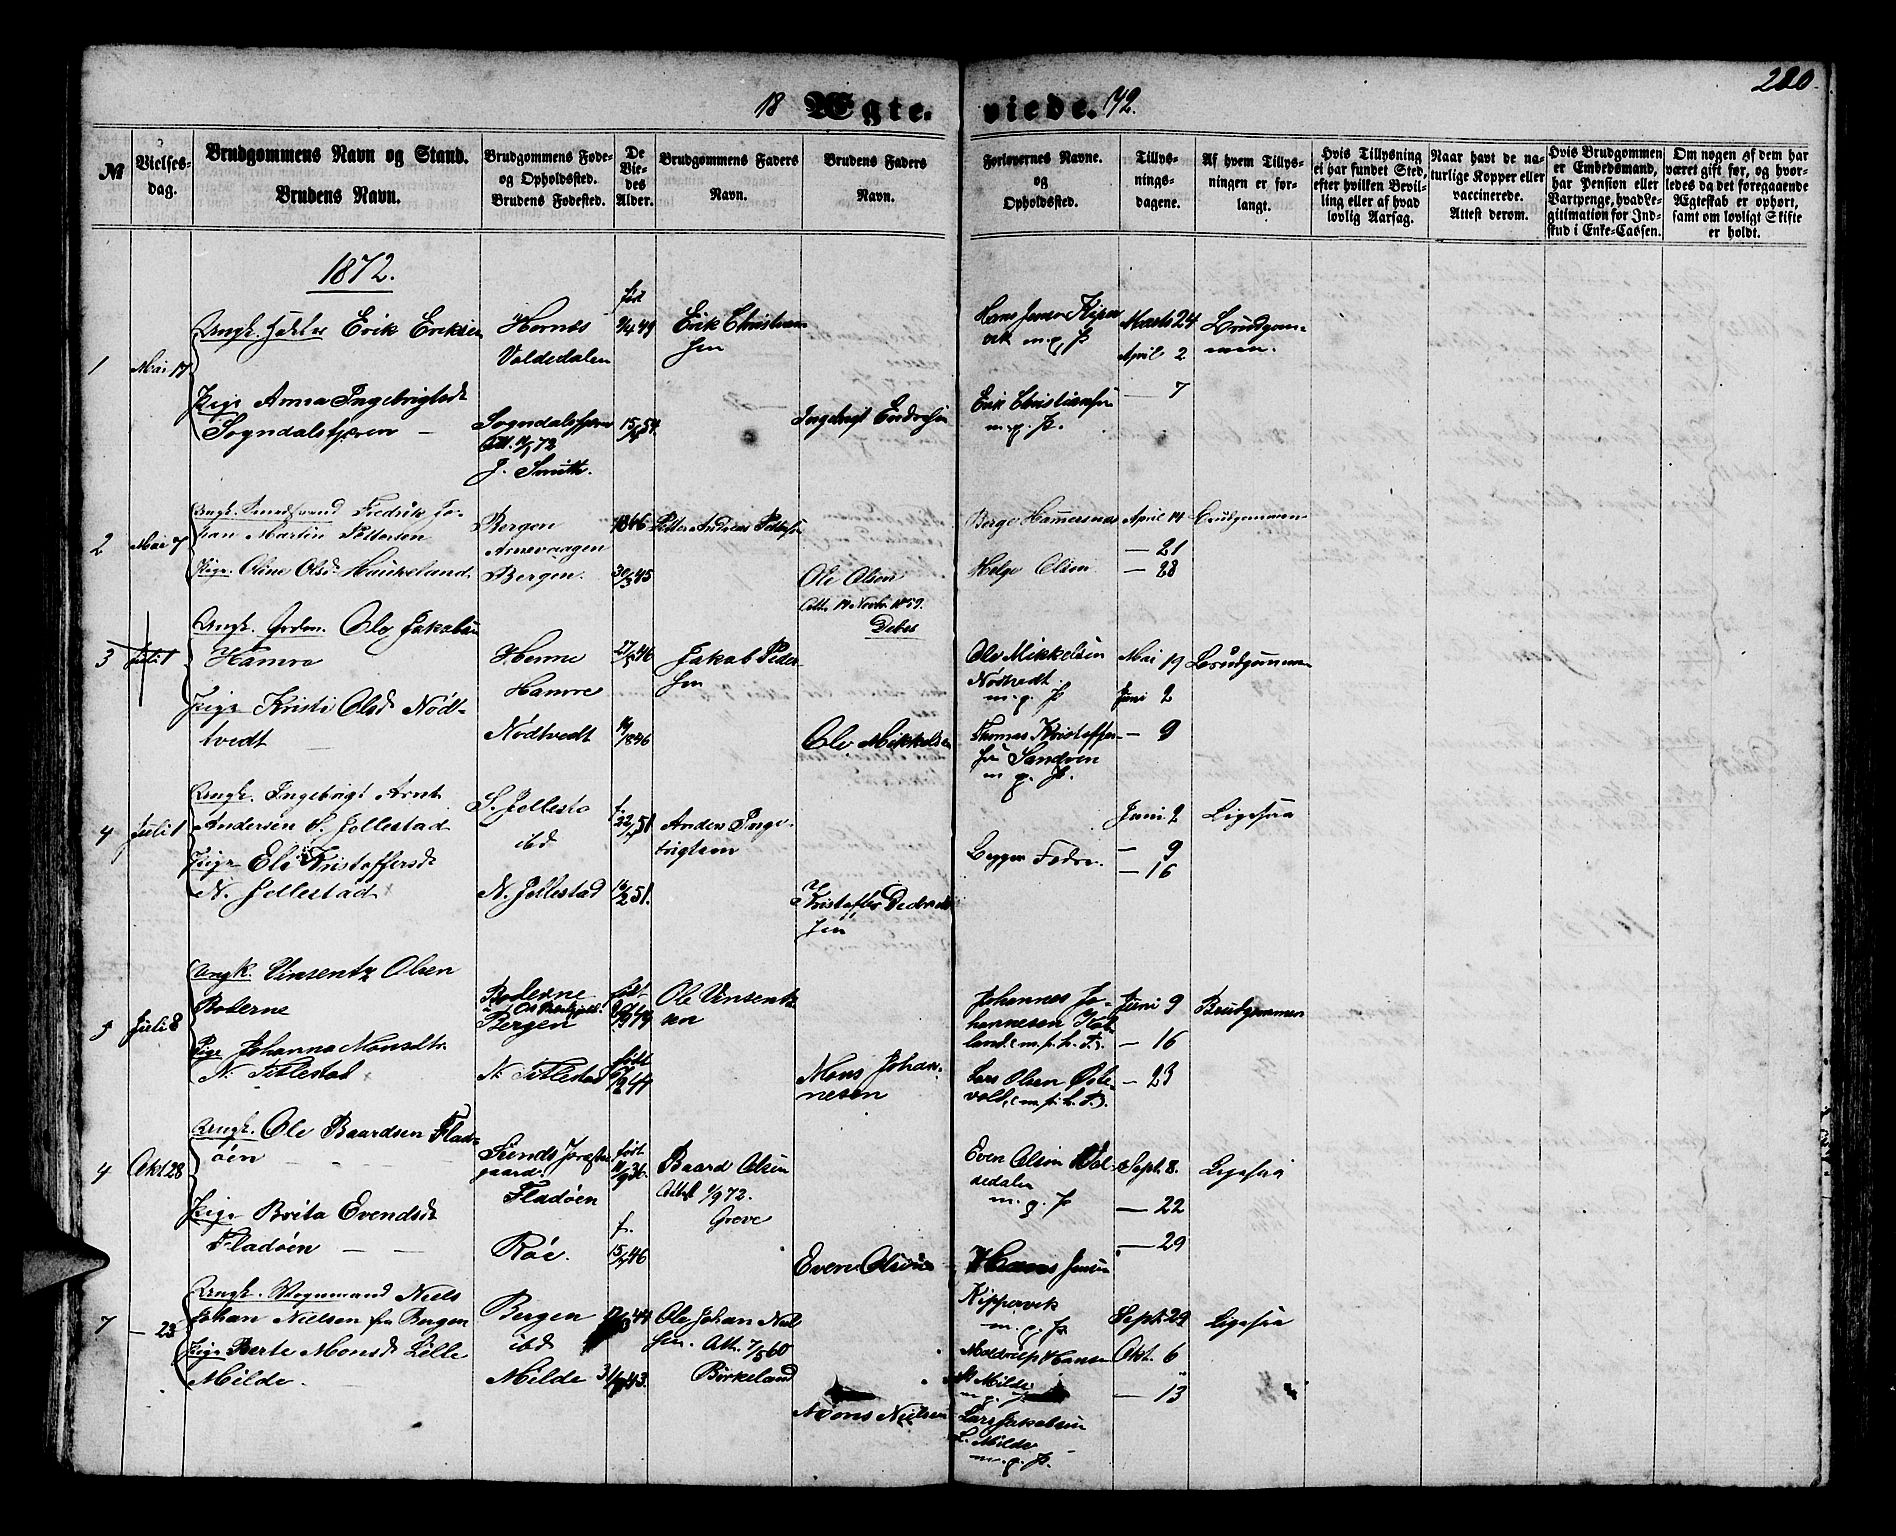 280.
18 Ægte- viede. 72.
№
Vielses-
dag.
Brudgommens Navn og Stand.
Brudens Navn.
Brudgommens Føde-
og Opholdssted.
Brudens Fødested.
De
Vie-
des
Alder.
Brudgommens Faders
Navn.
Brudens Faders
Navn.
Forlovernes Navne.
og
Opholdssted.
Tillys-
nings-
dagene.
Af hvem Tillys-
ningen er for-
langt.
Hvis Tillysning
ei har fundet Sted,
efter hvilken Bevil-
ling eller af hvad
lovlig Aarsag.
Naar havt de na-
turlige Kopper eller
vaccinerede.
Attest derom.
Hvis Brudgommen
er Embedsmand,
har Pension eller
Vartpenge, hvad Le-
gitimation for Ind-
skud i Enke-Cassen.
Om nogen af dem har
været gift før, og hvor-
ledes da det foregaaende
Ægteskab er ophørt,
samt om lovligt Skifte
er holdt.
1872.
1 Mai 17
Ungk. Erik Eriksen
Pige Anna Ingebrigtsdt
Sogndalsfjæren —
Hornæs
Valdedalen
Sogndalsfjæren
J. Smith.
Erik Christian-
sen
Ingebrigt Endresen
Hans Jensen
vik m. p. P.
Erik Christiansen
m. p. P.
Marts 24
April 2
— 7
Brudgom-
men.
2 Mai 7
Ungk. Fredrik Jo-
han Martin Pettersen
Pige. Oline Olsd. Haukeland.
Bergen
Arnevaagen
Bergen.
30/3 45
Petter Andreas Pettersen
Ole Olsen
Att. 14 Novbr. 1859.
Debes
Berge Hamersnæs
Helge Olsen
April 14
— 21
— 28
Brudgommen
3 Juli 1
Ungk. Ole Jakobsen
Hamre
Pige Kristi Olsd Nødt-
tvedt —
Hamre
Nødtvedt
Jakob Peder-
sen
Ole Mikkelsen
Ole Mikkelsen
Nødtvedt
m. p. P.
Thomas Kristoffer-
sen Sandven
m. p. P.
Mai 19
Juni 2
— 9
Brudgommen
4 Juli 1
Ungk. Ingebrigt Arnt
Andersen S. Jollestad
Pige Eli Kristoffersdt
N. Jollestad
S. Jollestad
ibd
N. Jollestad
f.
22/4 51
Anders Inge-
brigtsen
Kristoffer
sen
Begges Fædre.
Juni 2
— 9
— 16
Ligesaa
5 Juli 8
Ungk. Vinsentz Olsen
Roderne
Pige Johanna Monsdtr.
N. Titlestad
Roderne
Bergen
N. Titlestad
født
født
Ole Vinsentz-
sen
Mons Johan-
nesen
Johannes Jo-
hannesen
land (m. p. h. P.).
Lars Olsen
vold (m. p. h. P.).
Juni 9
— 16
— 23
Brudgommen
4 Okt 28
Ungk. Ole Baardsen Flad-
øen — —
Pige Brita Evendsdt
Fladøen — —
gaard.
Fladøen
Røe.
født
f.
Baard Olsen
Attest 1/9 72.
Greve
Even Olsen
Even Olsen Val-
dedalen
m. p. P.
Hans Jensen
Kippervik
m. p. P.
Sept. 8.
— 22
— 29
Ligesaa
7 — 23
Ungk. Vognmand Niels
Johan Nielsen fra Bergen
Pige Berte Monsdt Lille
Milde.
Bergen
ibd
Milde
Ole Johan Niel-
sen. Att. 7/5 60
Birkeland
Mons Nielsen
Hansen
Milde
Lars Jakobsen
L. Milde
m. p. P.
Sept. 29
Okt. 6
— 13
Ligesaa